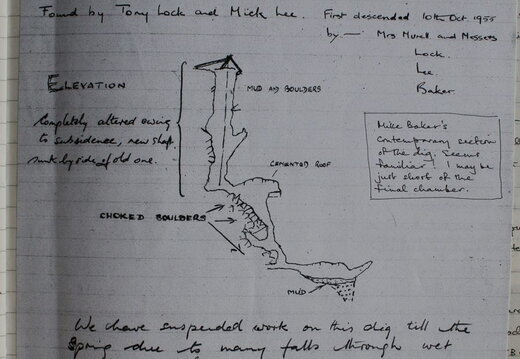 Found by Tony Lock and Mick Lee. First descended 10th Oct. 1955
by — Mrs Murell and Messers
Lock.
Lee.
Baker.
ELEVATION
Completely altered owing
to subsidence, new shaft
sunk by side of old one.
MUD AND BOULDERS
Mike Baker's
contemporary section
of the dig. Seems
familiar! I may be
just short of the
final chamber.
CEMENTED ROOF
CHOKED BOULDERS
MUD
We have suspended work on this dig till the
Spring due to many falls through wet